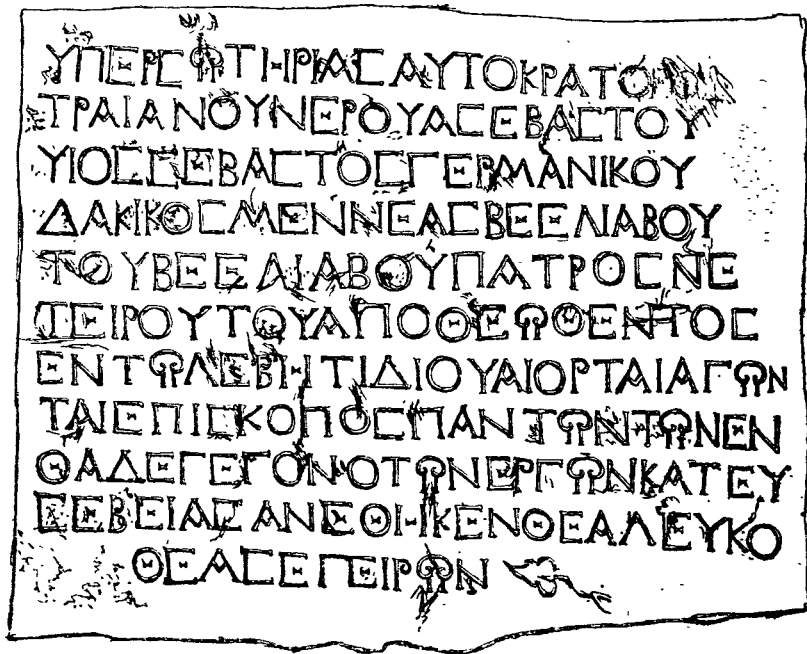 ΥΠΕΡΣΩΤΗΡΙΑΣΑΥΤΟΚΡΑΤΟΡΟ
ΤΡΑΙΑΝΟΥΝΕΡΟΥΑΣΕΒΑΣΤΟΥ
ΥΙΟΣΣΕΒΑΣΤΟΣΓΕΡΜΑΝΙΚΟΥ
ΔΑΚΙΚΟΣΜΕΝΝΕΑΣΒΕΕΛΙΑΒΟΥ
ΤΟΥΒΕΕΛΙΑΒΟΥΠΑΤΡΟΣΝΕ
ΤΕΙΡΟΥΤΟΥΑΠΟΘΕΩΘΕΝΤΟΣ
ΕΝΤΩΛΕΒΗΤΙΔΙΟΥΑΙΟΡΤΑΙΑΓΩΝ
ΤΑΙΕΠΙΣΚΟΠΟΣΠΑΝΤΩΝΤΩΝΕΝ
ΘΑΔΕΓΕΓΟΝΟΤΩΝΕΡΓΩΝΚΑΤΕΥ
ΣΕΒΕΙΑΣΑΝΕΘΗΚΕΝΘΕΑΛΕΥΚΟ
ΘΕΑΣΕΓΕΙΡΩΝ